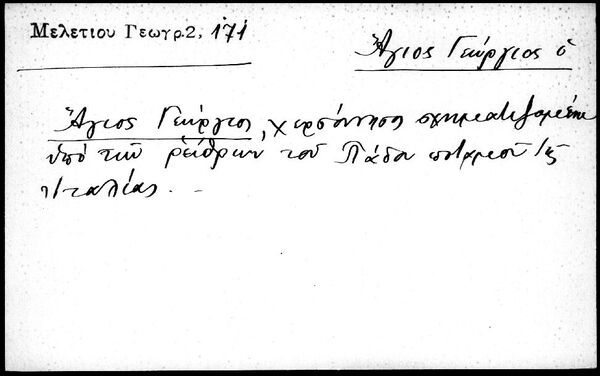 Μελετίου Γεωγρ. 2, 171
Ἅγιος Γεώργιος ὁ
Ἅγιος Γεώργιος, χερσόνησος σχηματιζομένη
ὑπὸ τῶν ῥείθρων τοῦ Πάδου ποταμοῦ τῆς
Ἰταλίας. –